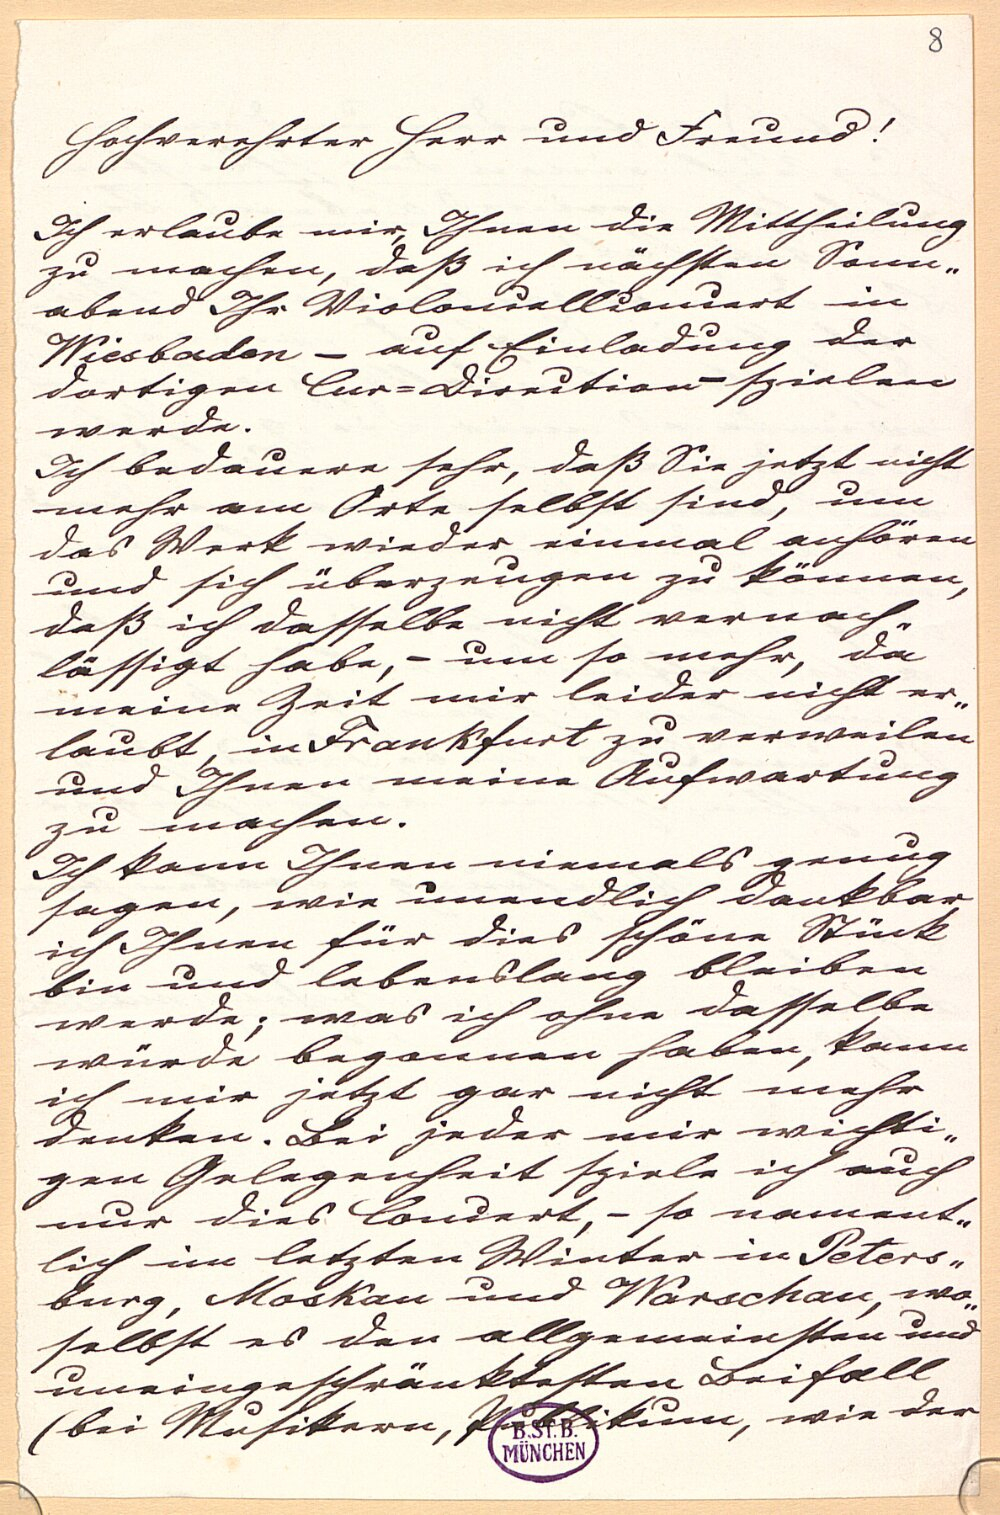 8
Hochverehrter Herr und Freund!
Ich erlaube mir, Ihnen die Mittheilung
zu machen, daß ich nächsten Sonn„
abend Ihr Violoncellconcert in
Wiesbaden – auf Einladung der
dortigen Cur=Direction – spielen
werde.
Ich bedauere sehr, daß Sie jetzt nicht
mehr am Orte selbst sind, um
das Werk wieder einmal anhören
und sich überzeugen zu können,
daß ich dasselbe nicht vernach„
lässigt habe, – um so mehr, da
meine Zeit mir leider nicht er„
laubt, in Frankfurt zu verweilen
und Ihnen meine Aufwartung
zu machen.
Ich kann Ihnen niemals genug
sagen, wie unendlich dankbar
ich Ihnen für dies schöne Stück
bin und lebenslang bleiben
werde; was ich ohne dasselbe
würde begonnen haben, kann
ich mir jetzt gar nicht mehr
denken. Bei jeder mir wichti„
gen Gelegenheit spiele ich auch
nur dies Concert, – so nament„
lich im letzten Winter in Peters„
burg, Moskau und Warschau, wo„
selbst es den allgemeinsten und
uneingeschränktesten Beifall
(bei Musikern, Publikum, wie der
B.St.B.
MÜNCHEN